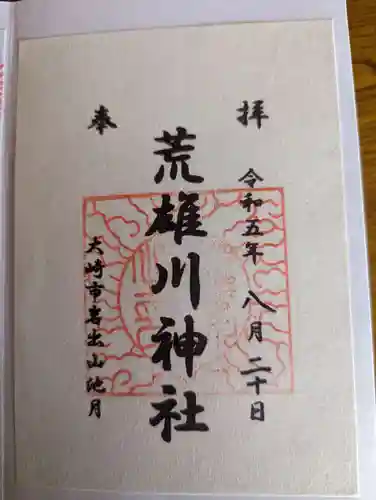 奉
拝
令和五年 八月 二十日
荒雄川神社
大崎市岩出山池月